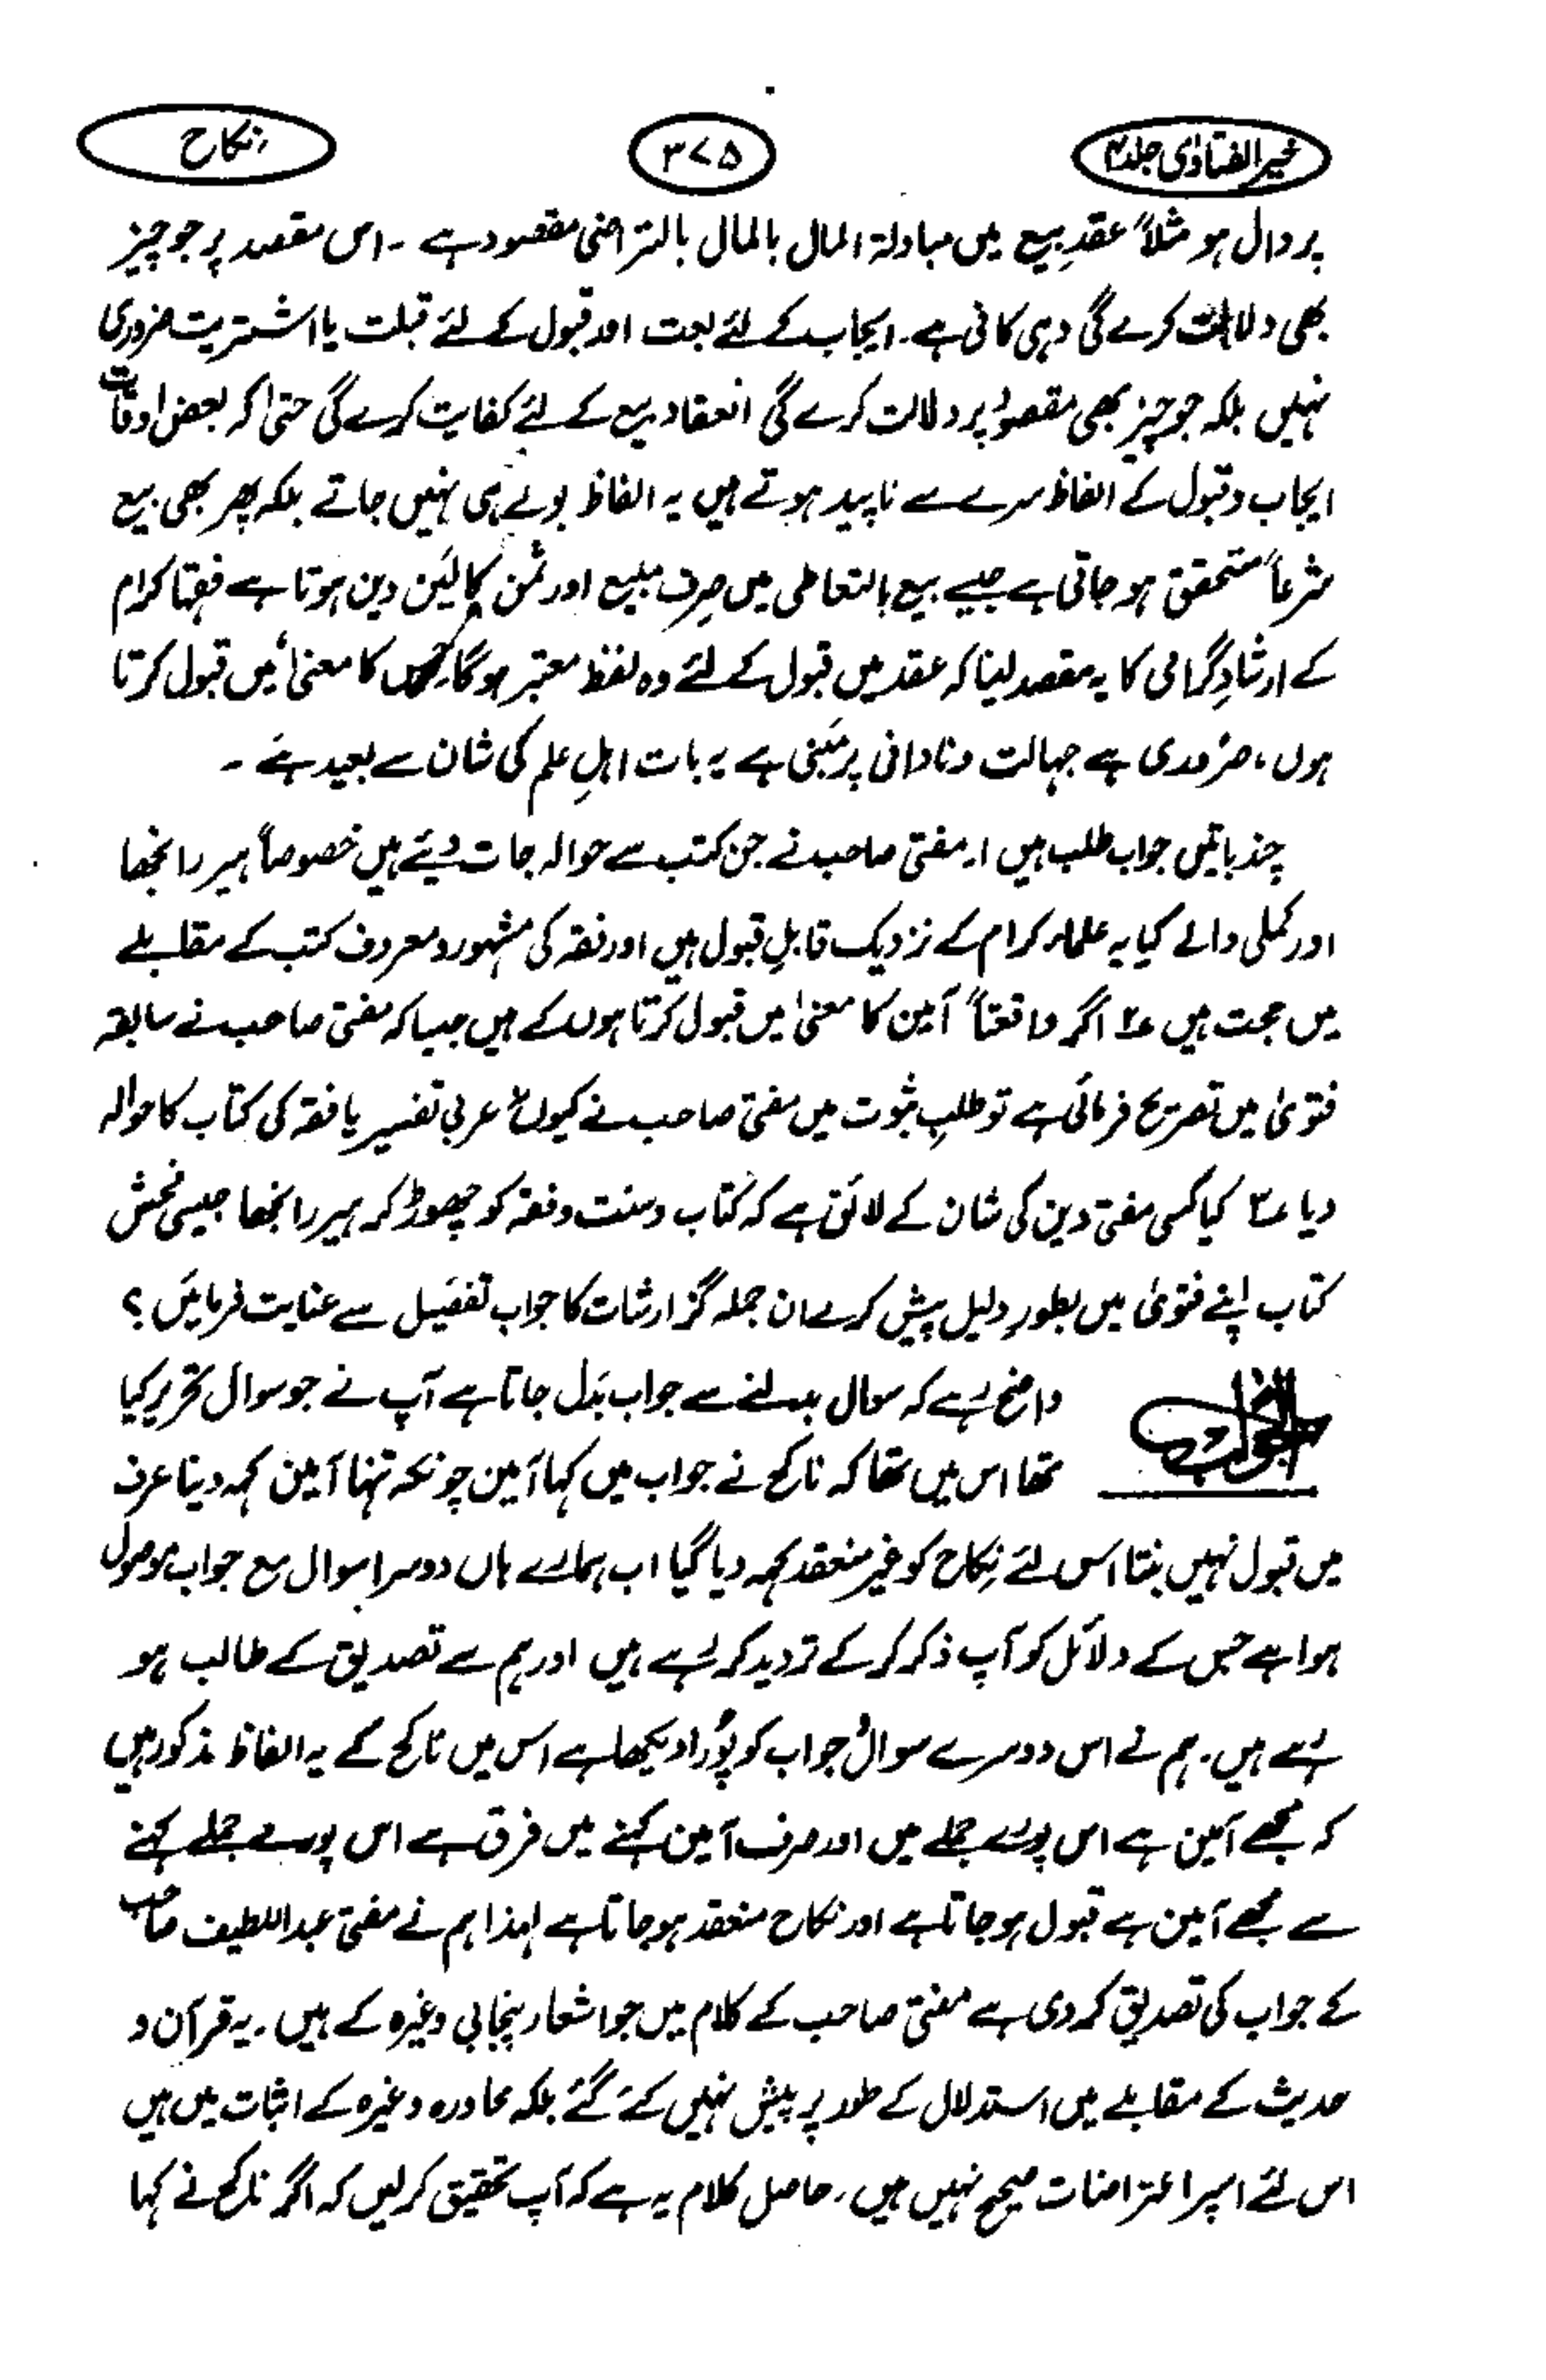 خیر الفتاوٰی جلد ۴
۳۷۵
نکاح
پر دال ہو مثلاً عقدِ بیع میں مبادلۃ المال بالمال بالتراضی مقصود ہے ۔ اس مقصد پر جو چیز
بھی دلالت کرے گی وہی کافی ہے ۔ ایجاب کے لئے بعت اور قبول کے لئے قبلت یا اشتریت ضروری
نہیں بلکہ جو چیز بھی مقصود پر دلالت کرے گی انعقاد بیع کے لئے کفایت کرے گی حتیٰ کہ بعض اوقات
ایجاب و قبول کے الفاظ سرے سے ناپید ہوتے ہیں یہ الفاظ بولے ہی نہیں جاتے بلکہ پھر بھی بیع
شرعاً متحقق ہو جاتی ہے جیسے بیع بالتعاطی میں صرف مبیع اور ثمن کا لین دین ہوتا ہے فقہا کرام
کے ارشادِ گرامی کا یہ مقصد لینا کہ عقد میں قبول کے لئے وہ لفظ معتبر ہو گا جس کا معنیٰ میں قبول کرتا
ہوں ، ضروری ہے جہالت و نادانی پر مبنی ہے یہ بات اہلِ علم کی شان سے بعید ہے ۔
چند باتیں جواب طلب ہیں ۱۔ مفتی صاحب نے جن کتب سے حوالہ جات دیئے ہیں خصوصاً ہیر رانجھا
اور کملی والے کیا یہ علماء کرام کے نزدیک قابلِ قبول ہیں اور فقہ کی مشہور و معروف کتب کے مقابلے
میں حجت ہیں ۲ اگر واقعتاً آمین کا معنیٰ میں قبول کرتا ہوں کے ہیں جیسا کہ مفتی صاحب نے سابقہ
فتویٰ میں تصریح فرمائی ہے تو طلبِ ثبوت میں مفتی صاحب نے کیوں نہ عربی تفسیر یا فقہ کی کتاب کا حوالہ
دیا ۳ کیا کسی مفتی دین کی شان کے لائق ہے کہ کتاب و سنت و فقہ کو چھوڑ کر ہیر رانجھا جیسی فحش
کتاب اپنے فتویٰ میں بطورِ دلیل پیش کرے ان جملہ گزارشات کا جواب تفصیل سے عنایت فرمائیں ؟
الجواب
واضح رہے کہ سوال بدلنے سے جواب بدل جاتا ہے آپ نے جو سوال تحریر کیا
تھا اس میں تھا کہ ناکح نے جواب میں کہا آمین چونکہ تنہا آمین کہہ دینا عرف
میں قبول نہیں بنتا اس لئے نکاح کو غیر منعقد کہہ دیا گیا اب ہمارے ہاں دوسرا سوال مع جواب موصول
ہوا ہے جس کے دلائل کو آپ ذکر کر کے تردید کر رہے ہیں اور ہم سے تصدیق کے طالب ہو
رہے ہیں ۔ ہم نے اس دوسرے سوال و جواب کو پورا دیکھا ہے اس میں ناکح کے یہ الفاظ مذکور ہیں
کہ مجھے آمین ہے اس پورے جملے میں اور صرف آمین کہنے میں فرق ہے اس پورے جملے کہنے
سے مجھے آمین ہے قبول ہو جاتا ہے اور نکاح منعقد ہو جاتا ہے لہذا ہم نے مفتی عبداللطیف صاحب
کے جواب کی تصدیق کر دی ہے مفتی صاحب کے کلام میں جو اشعار پنجابی وغیرہ کے ہیں ۔ یہ قرآن و
حدیث کے مقابلے میں استدلال کے طور پر پیش نہیں کئے گئے بلکہ محاورہ وغیرہ کے اثبات میں ہیں
اس لئے اسپر اعتراضات صحیح نہیں ہیں ، حاصل کلام یہ ہے کہ آپ تحقیق کر لیں کہ اگر ناکح نے کہا